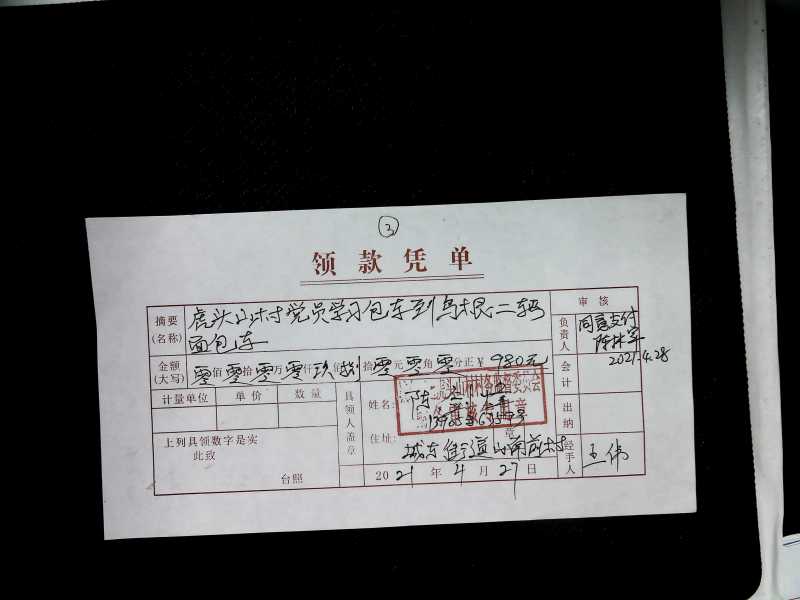 ③
领款凭单
摘要(名称) 虎头山村党员学习包车到乌根二辆
面包车
审核
负责人 同意支付
2021.4.28
金额(大写) 零佰零拾零万零仟玖佰捌拾零元零角零分正￥980元
计量单位 单价 数量
具领人盖章
姓名: 陈
会计
出纳
上列具领数字是实
此致
台照
住址: 城东街道山南前村
2021年4月27日
经手人 王伟